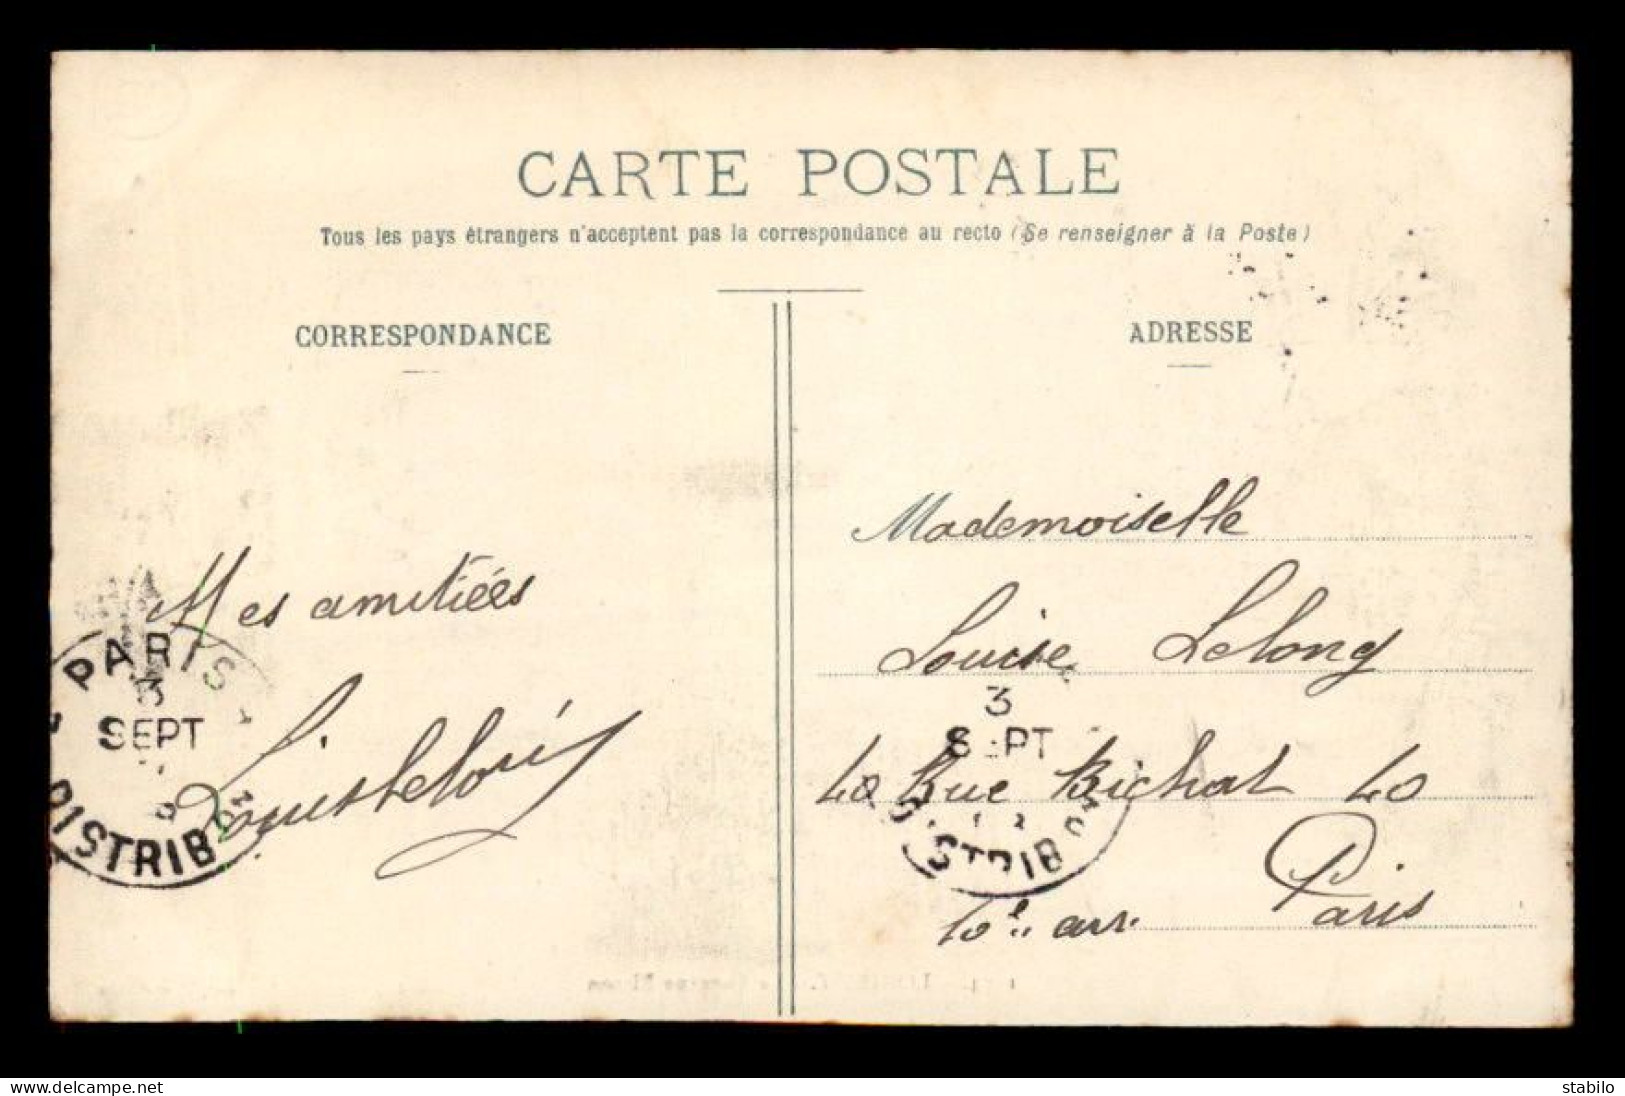 CARTE POSTALE
Tous les pays étrangers n'acceptent pas la correspondance au recto (Se renseigner à la Poste)
CORRESPONDANCE
ADRESSE
Mes amitiées
PARIS
3
SEPT
DISTRIB
Mademoiselle
Louise Lelong
3
SEPT
40 Rue Bichat 40
DISTRIB
10e arr. Paris
delcampe.net
stabilo